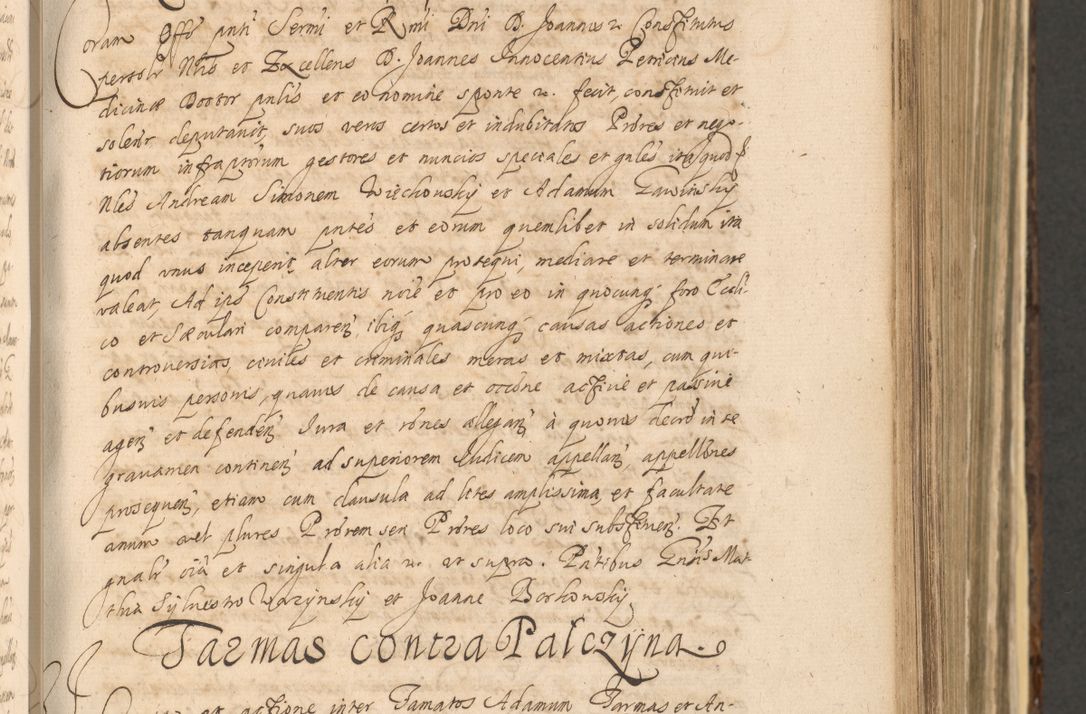 Coram Offo pnti Sermi et Rmi Dni D. Joannis &c Constitutus
persolr Nlis et Excellens D. Joannes Innocentius Petricius Me-
dicinæ Doctor pnlis et eo nomine sponte &c. fecit, constituit et
solenr deputavit, suos veros certos et indubitatos Prores et nego-
tiorum infraptorum gestores et nuncios speciales et gnles ita quod
Nles Andream Simonem Więchowsky et Adamum Zawinsky
absentes tanquam pntes et eorum quemlibet in solidum ita
quod unus inceperit, alter eorum prosequi, mediare et terminare
valeat, Ad ips Constituentis noie et pro eo in quocunq foro Eccli
co et Sæculari comparen ibiq quascunq causas actiones et
controversias, civiles et criminales meras et mixtas, cum qui-
busvis personis, quavis de causa et occone active et passive
agen et defenden Iura et rones allegan, à quovis decro in se
gravamen continen ad superiorem Iudicem appellan, appellones
prosequen, etiam cum clausula ad lites amplissima, et facultate
unum vel plures Prorem seu Prores loco sui substituen. Et
gnalr oia et singula alia &c. ut supra. Pntibus Gnosis Mat
thia Sylvestro Warzynsky et Joanne Borkowsky
Tarmas contra Palczyna.
et actione inter Famatos Adamum Tarmas et An-